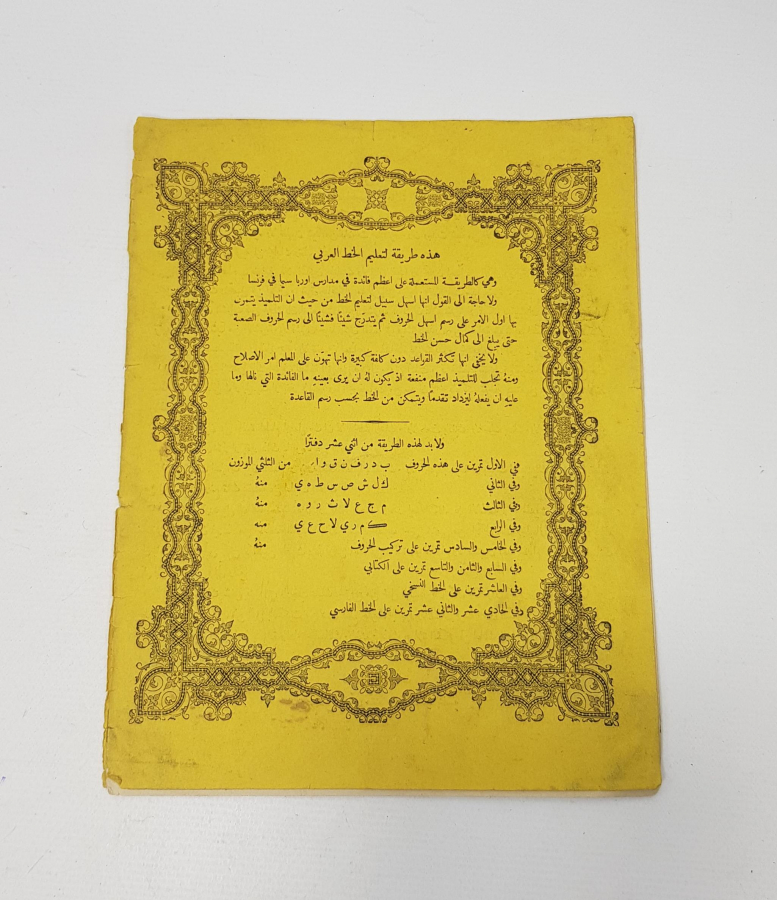 هذه طريقة لتعليم الخط العربي
وهي كالطريقة المستعملة على اعظم فائدة في مدارس اوربا سيما في فرنسا
ولا حاجة الى القول انها اسهل سبيل لتعليم الخط من حيث ان التلميذ يتمرن
بها اول الامر على رسم اسهل الحروف ثم يتدرّج شيئًا فشيئًا الى رسم الحروف الصعبة
حتى يبلغ الى كمال حسن الخط
ولا يخفى انها تكثر القواعد دون كلفة كبيرة وانها تهوّن على المعلم امر الاصلاح
ومنهُ تجلب للتلميذ اعظم منفعة اذ يكون لهُ ان يرى بعينهِ ما الفائدة التي نالها وما
عليهِ ان يفعلهُ ليزداد تقدمًا ويتمكن من الخط بحسب رسم القاعدة
ولا بد لهذه الطريقة من اثني عشر دفترًا
في الاول تمرين على هذه الحروف ب د ر ف ن ق و ا من الثلثي الموزون
وفي الثاني ك ل ش ص س ط ه ي منهُ
وفي الثالث م ج ع لا ث ر و ه منهُ
وفي الرابع ك م ر ي لا ح ع ي منه
وفي الخامس والسادس تمرين على تركيب الحروف منهُ
وفي السابع والثامن والتاسع تمرين على الكتابي
وفي العاشر تمرين على الخط النسخي
وفي الحادي عشر والثاني عشر تمرين على الخط الفارسي